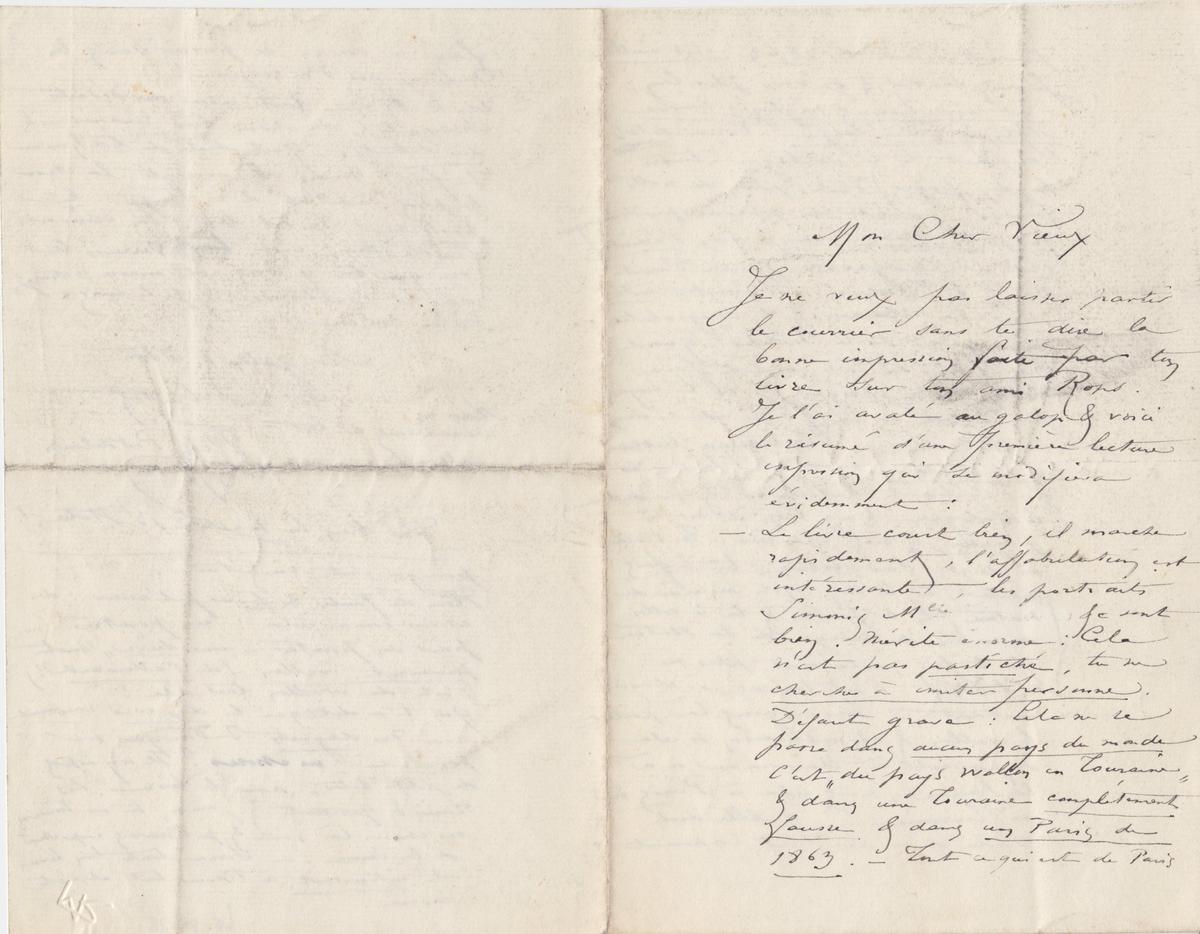 Mon Cher Vieux
Je ne veux pas laisser partir
le courrier sans te dire la
bonne impression faite par ton
livre sur ton ami Rops.
Je l'ai avalé au galop & voici
le résumé d'une première lecture
impression qui se modifiera
évidemment :
— Le livre court bien, il marche
rapidement, l'affabulation est
intéressante, les portraits
Simonis Mlle , &c sont
bien. Mérite énorme : Cela
n'est pas pastiché, tu ne
cherches à imiter personne.
Défaut grave : Cela ne se
passe dans aucun pays du monde
C'est „du pays wallon en Touraine„
& dans une Touraine complètement
fausse & dans un Paris de
1863. — Tout ce qui est de Paris